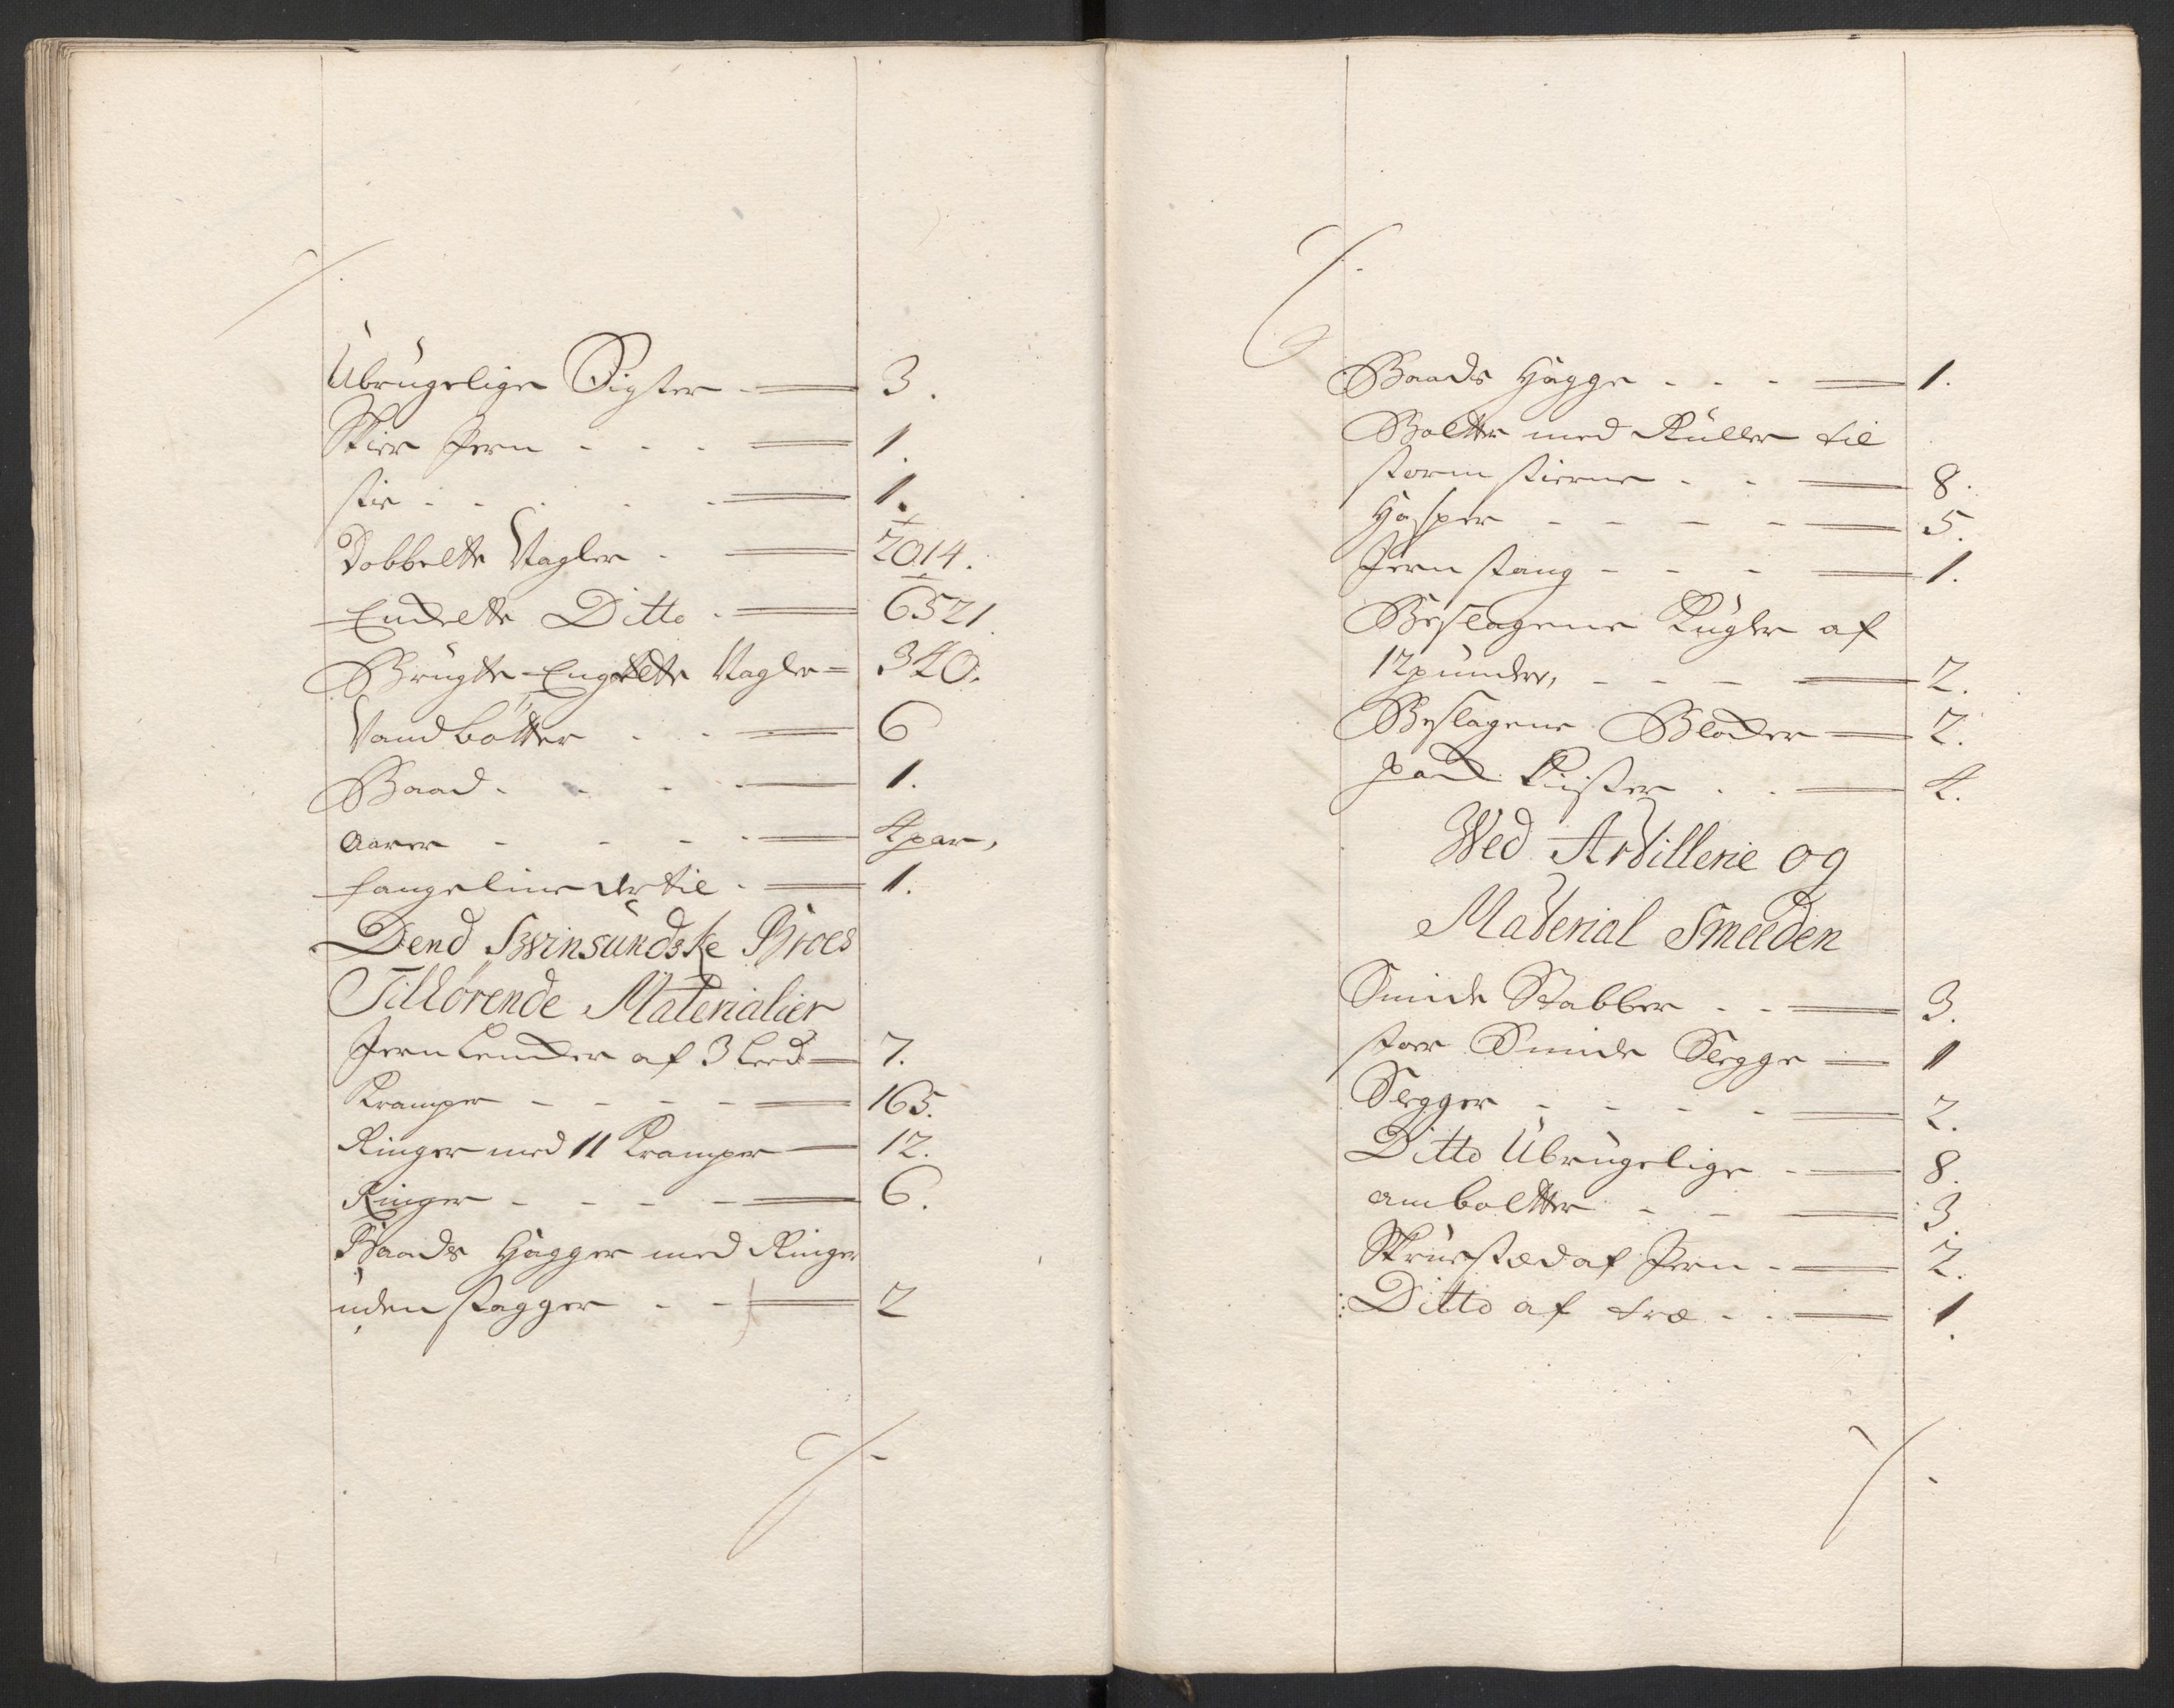 Ubrugelige Sigter - 3.
Skier Jern - - - 1.
stie - - - - 1.
Dobbelte Nagler - 2014.
Enckelte Ditto - 6521.
Brugte Engkelte Nagler - 340.
Vandbötter - - 6
Baad - - - 1.
Aarer - - - - 4 par,
fangeline dertil - 1.
Dend Swinsundske Broes
Tilhörende Materialier
Jern Lencker af 3 Leed - 7.
Kramper - - - - 165.
Ringer med 11 Kramper - 12.
Ringer - - - - 6.
Baads Hagger med Ringe
uden stagger - - 2
Baads Hagge - - - 1.
Boltte med Ruller til
storm stierne - - 8.
Hasper - - - - 5.
Jern stang - - - 1.
Beslagene Kugler af
12 pünder, - - - 2.
Beslagene Blocker - 2.
Kister - - 4.
Wed Artillerie og
Material Smeeden
Smide Stabber - - 3.
stoer Smide Slegge - 1
Slegger - - - - 2.
Ditto Ubrugelige - 8.
amboltter - - 3.
Skruestæd af Jern - 2.
Ditto af træ - - 1.